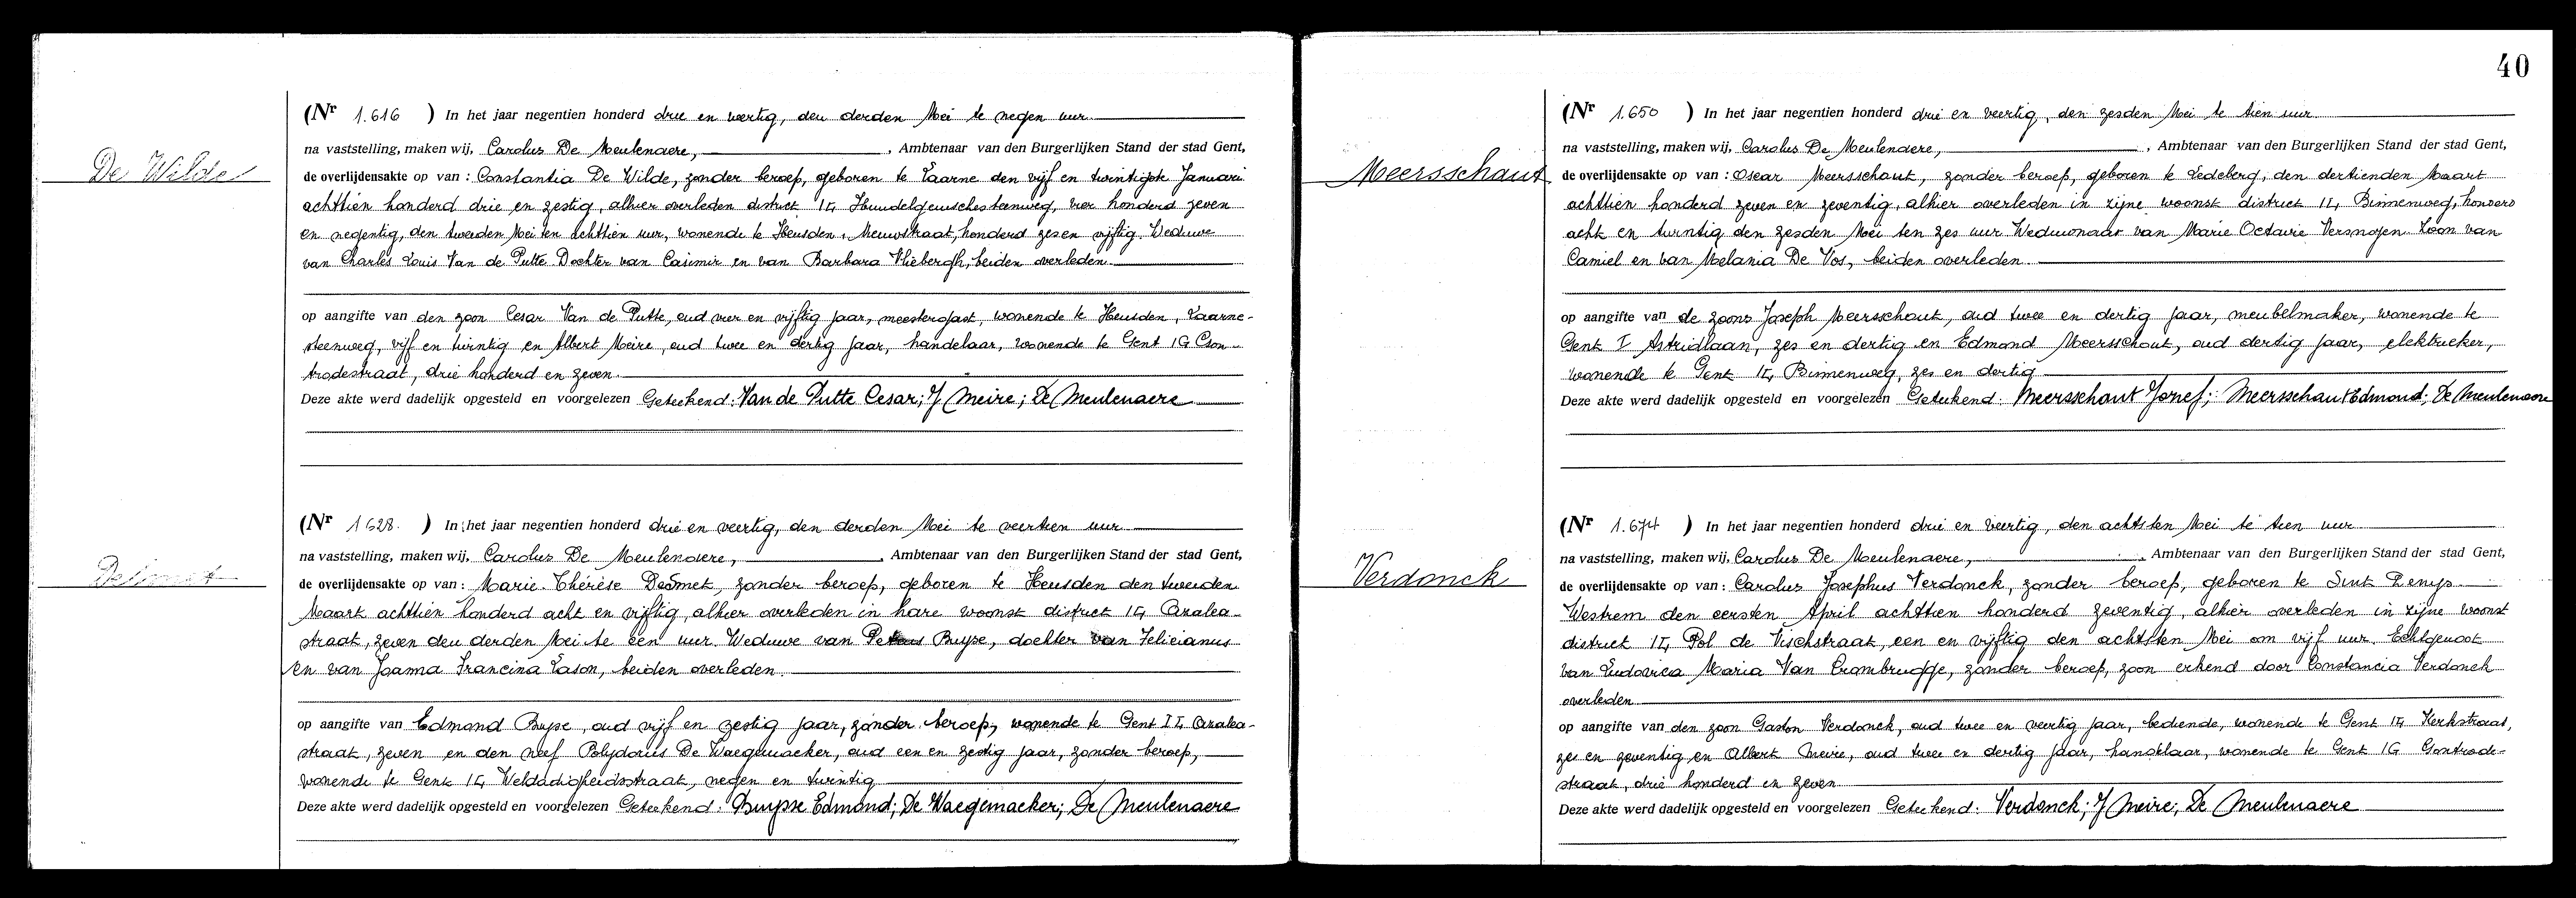 De Wilde
(Nr 1.616 ) In het jaar negentien honderd drie en veertig, den derden Mei te negen uur
na vaststelling, maken wij, Carolus De Meulenaere, , Ambtenaar van den Burgerlijken Stand der stad Gent,
de overlijdensakte op van : Constantia De Wilde, zonder beroep, geboren te Laarne den vijf en twintigste Januari
achttien honderd drie en zestig, alhier overleden district I G, Hundelgemschesteenweg, vier honderd zeven
en negentig, den tweeden Mei ten achttien uur, wonende te Heusden, Nieuwstraat, honderd zes en vijftig. Weduwe
van Charles Louis Van de Putte. Dochter van Casimir en van Barbara Vliebergh, beiden overleden.
op aangifte van den zoon Cesar Van de Putte, oud vier en vijftig jaar, meestergast, wonende te Heusden, Laarne-
steenweg, vijf en twintig en Albert Meire, oud twee en dertig jaar, handelaar, wonende te Gent I G
trodestraat, drie honderd en zeven.
Deze akte werd dadelijk opgesteld en voorgelezen Geteekend: Van de Putte Cesar; J Meire; De Meulenaere
Desmet
(Nr 1628. ) In het jaar negentien honderd drie en veertig, den derden Mei te veertien uur
na vaststelling, maken wij, Carolus De Meulenaere, , Ambtenaar van den Burgerlijken Stand der stad Gent,
de overlijdensakte op van : Marie-Thérèse Desmet, zonder beroep, geboren te Heusden den tweeden
Maart achttien honderd acht en vijftig, alhier overleden in hare woonst district I G, Azalea-
straat, zeven den derden Mei te een uur. Weduwe van Buyse, dochter van Felicianus
en van Joanna Francina Lason, beiden overleden.
op aangifte van Edmond Buyse, oud vijf en zestig jaar, zonder beroep, wonende te Gent I G Azalea-
straat, zeven en den neef Polydorus De Waegemaeker, oud een en zestig jaar, zonder beroep,
wonende te Gent I G Weldadigheidstraat, negen en twintig
Deze akte werd dadelijk opgesteld en voorgelezen Geteekend: Buysse Edmond; De Waegemaeker; De Meulenaere
40
Meersschaut
(Nr 1.650 ) In het jaar negentien honderd drie en veertig, den zesden Mei te tien uur
na vaststelling, maken wij, Carolus De Meulenaere, , Ambtenaar van den Burgerlijken Stand der stad Gent,
de overlijdensakte op van : Oscar Meersschaut, zonder beroep, geboren te Ledeberg, den dertienden Maart
achttien honderd zeven en zeventig, alhier overleden in zijne woonst district I G, Binnenweg, honderd
acht en twintig den zesden Mei ten zes uur Weduwnaar van Marie Octavie Vermoyen. Zoon van
Camiel en van Melania De Vos, beiden overleden.
op aangifte van de zoons Joseph Meersschaut, oud twee en dertig jaar, meubelmaker, wonende te
Gent I Astridlaan, zes en dertig en Edmond Meersschout, oud dertig jaar, elektrieker,
wonende te Gent I G, Binnenweg, zes en dertig
Deze akte werd dadelijk opgesteld en voorgelezen Geteekend: Meersschaut Jozef; Meersschaut Edmond; De Meulenaere
Verdonck
(Nr 1.674 ) In het jaar negentien honderd drie en veertig, den achtsten Mei te tien uur
na vaststelling, maken wij, Carolus De Meulenaere, , Ambtenaar van den Burgerlijken Stand der stad Gent,
de overlijdensakte op van : Carolus Josephus Verdonck, zonder beroep, geboren te Sint Denijs
Westrem den eersten April achttien honderd zeventig, alhier overleden in zijne woonst
district I G, Pol de Vischstraat, een en vijftig den achtsten Mei om vijf uur. Echtgenoot
van Ludovica Maria Van Crombrugge, zonder beroep, zoon erkend door Constancia Verdonck
overleden
op aangifte van den zoon Gaston Verdonck, oud twee en veertig jaar, bediende, wonende te Gent I G Kerkstraat,
zes en zeventig en Albert Meire, oud twee en dertig jaar, handelaar, wonende te Gent I G Gontrode-
straat, drie honderd en zeven
Deze akte werd dadelijk opgesteld en voorgelezen Geteekend: Verdonck; J Meire; De Meulenaere